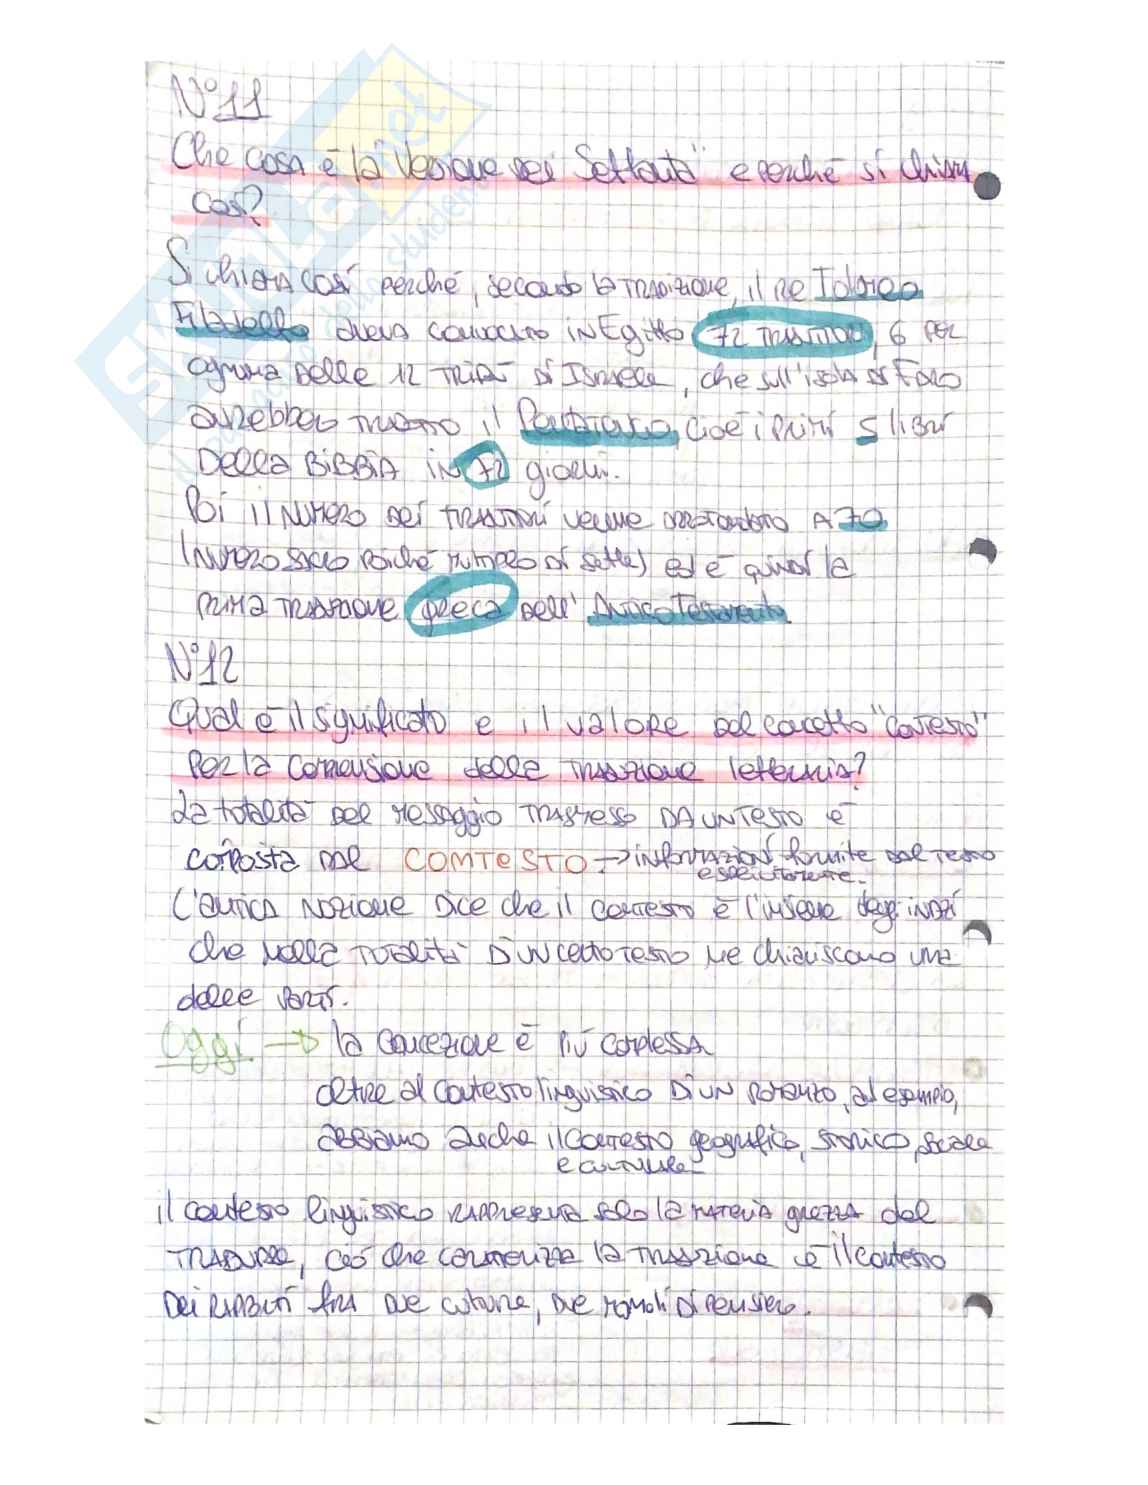 N°11
Che cosa è la "Versione dei Settanta" e perché si chiama
così?
Si chiama così perché, secondo la tradizione, il re Tolomeo
Filadelfo aveva convocato in Egitto 72 traduttori, 6 per
ognuna delle 12 tribù di Israele, che sull'isola di Faro
avrebbero tradotto il Pentateuco, cioè i primi 5 libri
della Bibbia in 72 giorni.
Poi il numero dei traduttori venne arrotondato a 70
(numero sacro poiché multiplo di sette) ed è quindi la
prima traduzione greca dell'Antico Testamento.
N°12
Qual è il significato e il valore del concetto "contesto"
per la comprensione della traduzione letteraria?
La totalità del messaggio trasmesso da un testo è
composta dal COMTESTO → informazioni fornite dal testo
esplicitamente.
L'antica nozione dice che il contesto è l'insieme degli indizi
che nella totalità di un certo testo ne chiariscono una
delle parti.
Oggi → la concezione è più complessa
oltre al contesto linguistico di un romanzo, ad esempio,
abbiamo anche il contesto geografico, storico, sociale
e culturale
il contesto linguistico rappresenta solo la materia grezza del
tradurre, ciò che caratterizza la traduzione è il contesto
dei rapporti fra due culture, due mondi di pensiero.